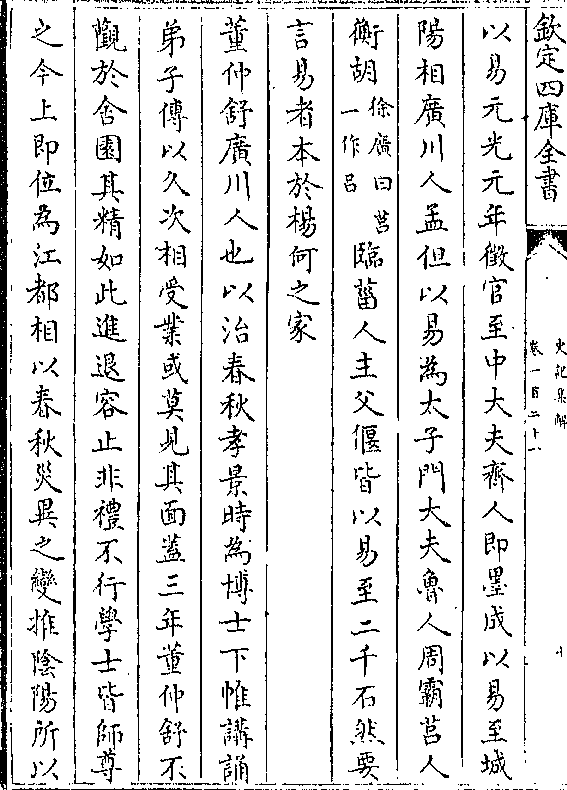 欽定四庫全書
史記集解
卷一百二十一
十
以易元光元年徵官至中大夫齊人即墨成以易至城
陽相廣川人孟但以易為太子門大夫魯人周霸莒人
衡胡徐廣曰莒一作呂臨菑人主父偃皆以易至二千石然要
言易者本於楊何之家
董仲舒廣川人也以治春秋孝景時為博士下帷講誦
弟子傳以久次相受業或莫見其面蓋三年董仲舒不
觀於舍園其精如此進退容止非禮不行學士皆師尊
之今上即位為江都相以春秋災異之變推陰陽所以